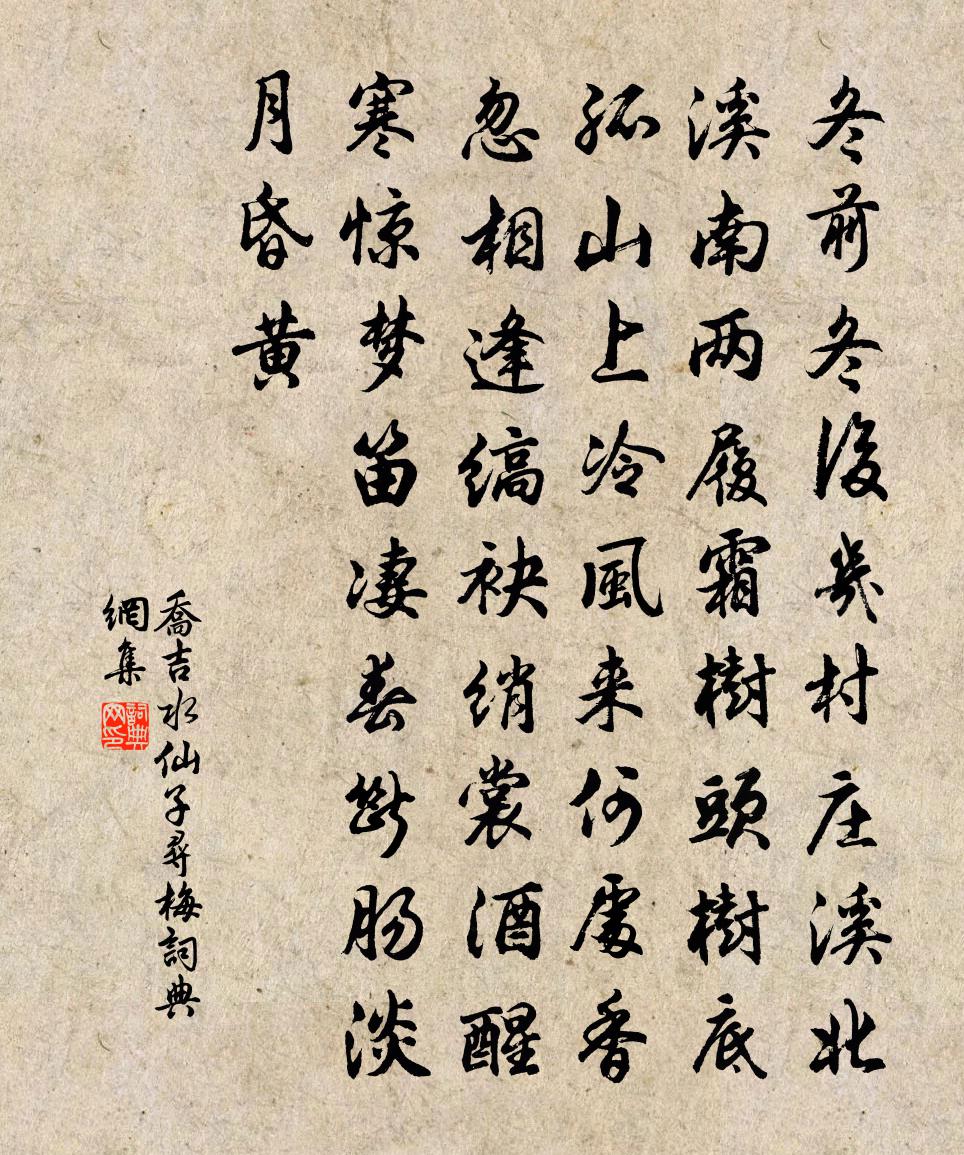 冬前冬後幾村庄溪北
溪南两履霜樹頭樹底
孤山上冷風来何處香
忽相逢缟袂绡裳酒醒
寒惊梦笛凄春斷肠淡
月昏黄
喬吉水仙子尋梅詞典
網集
詞典
网印